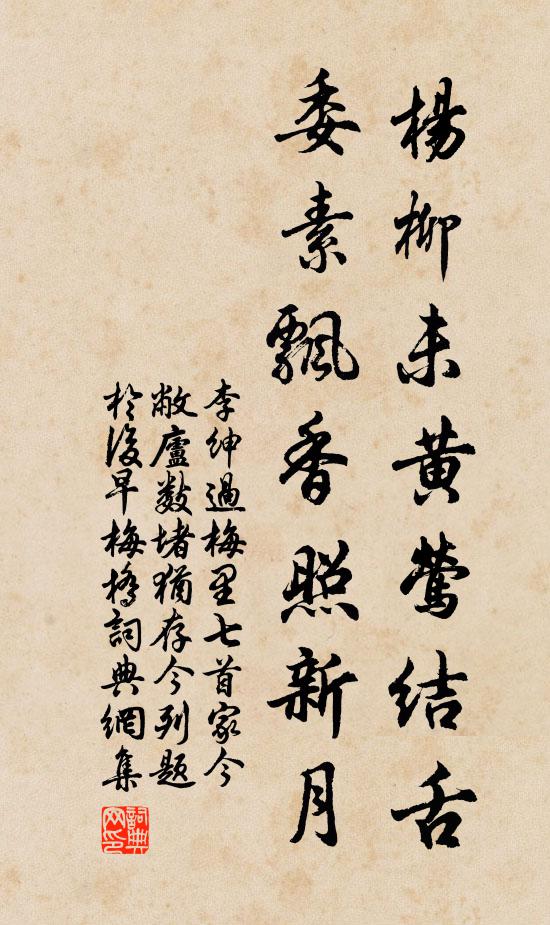 楊柳未黃鶯結舌
委素飄香照新月
李紳過梅里七首家今
敝廬數堵猶存今列題
於後早梅橋詞典網集
詞典网印